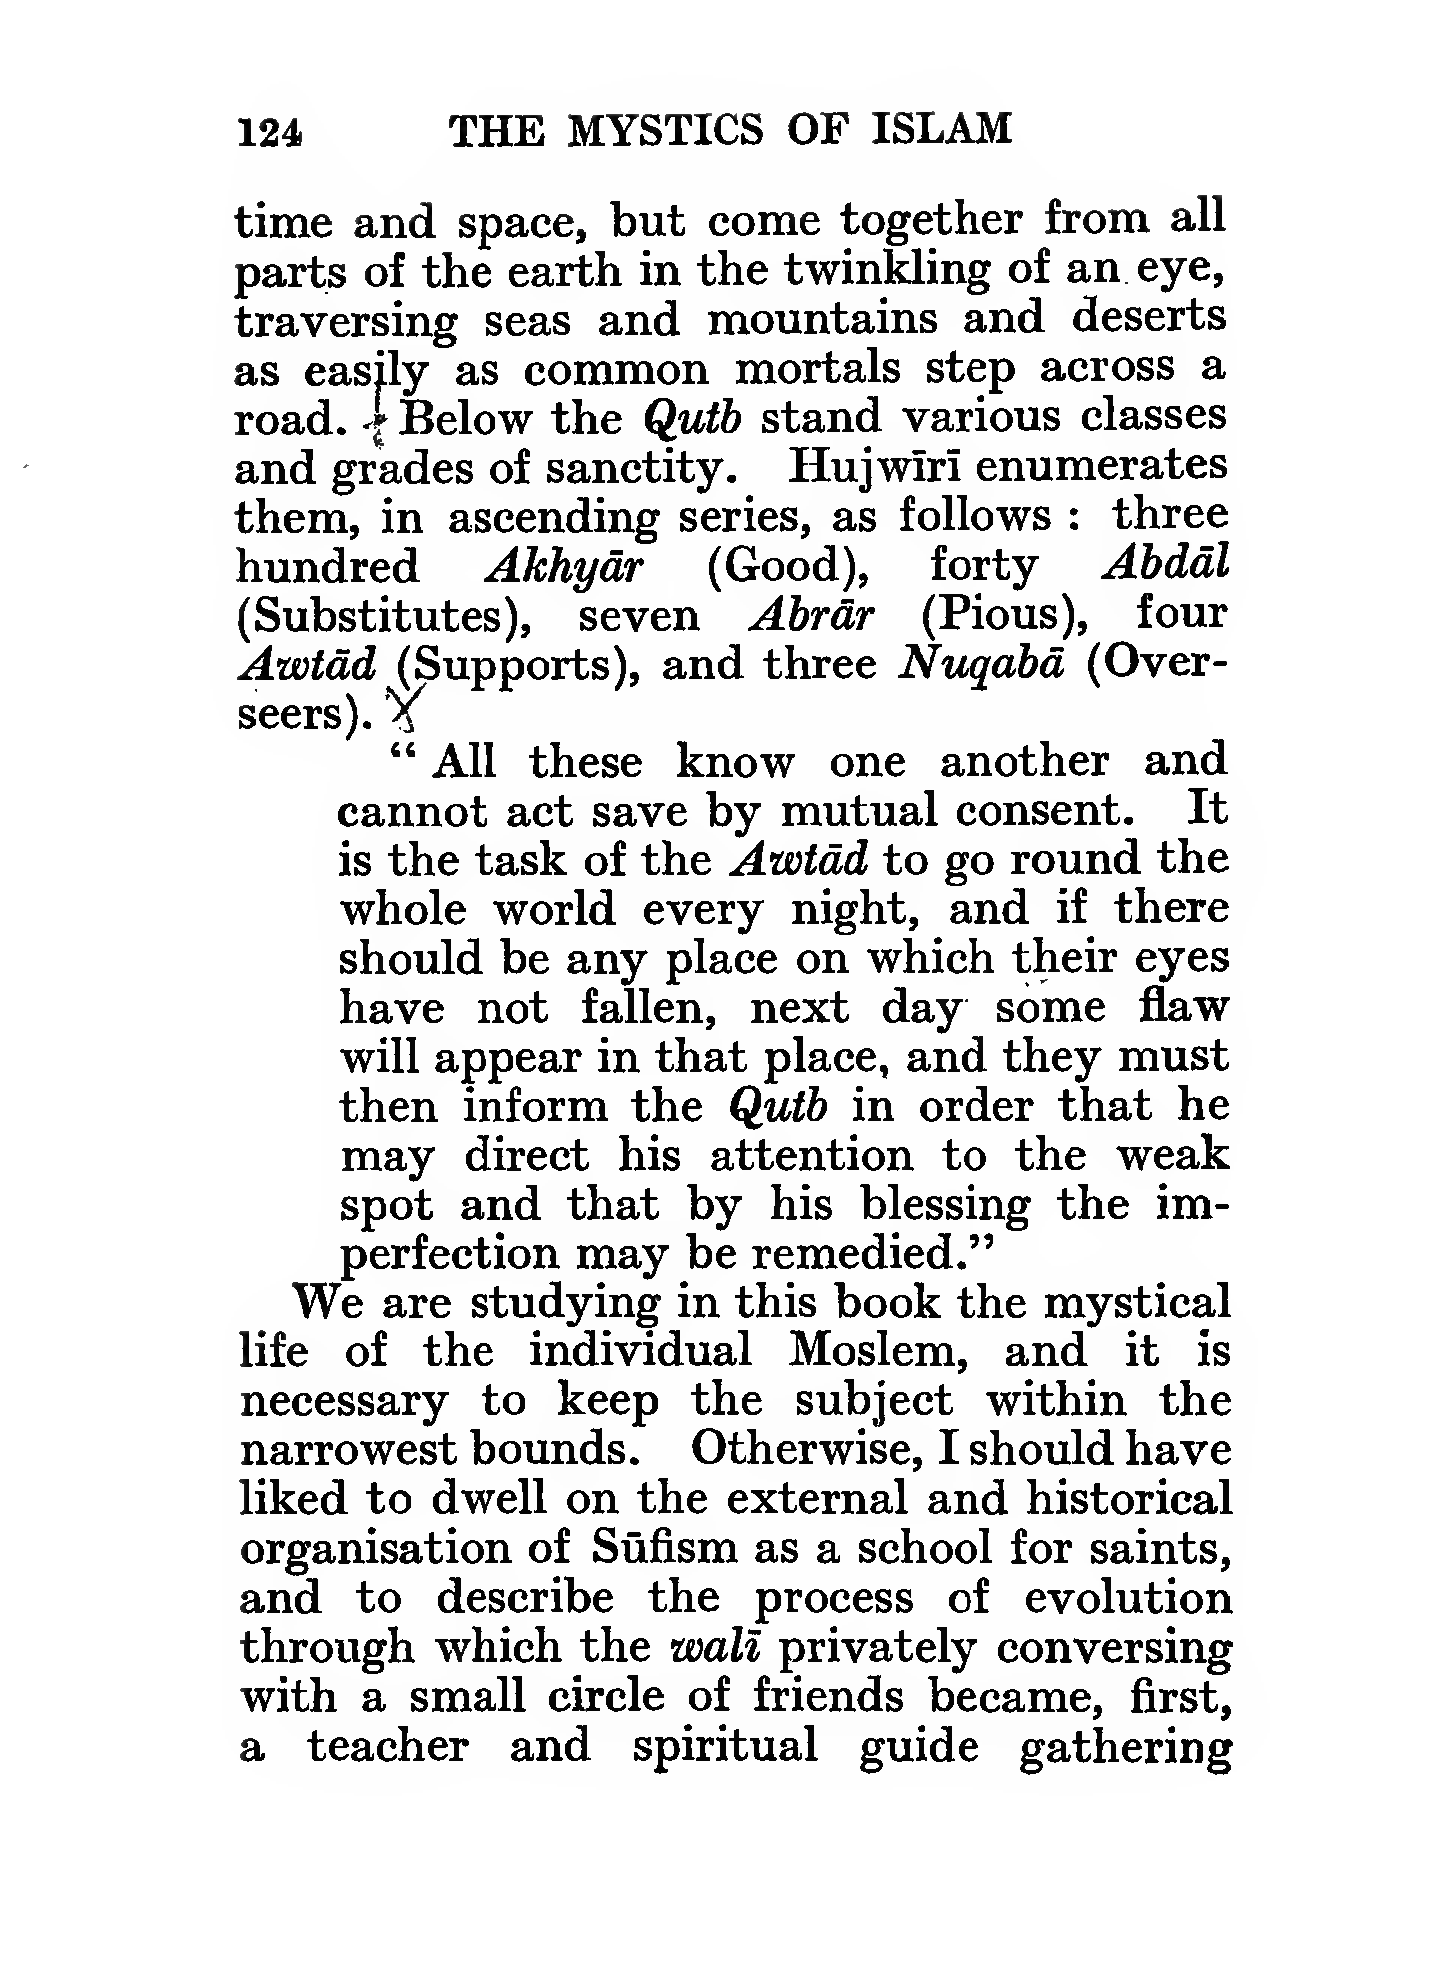 124 THE MYSTICS OF ISLAM
time and space, but come together from all
parts of the earth in the twinkling of an eye,
traversing seas and mountains and deserts
as easily as common mortals step across a
road. Below the Qutb stand various classes
and grades of sanctity. Hujwīrī enumerates
them, in ascending series, as follows : three
hundred Akhyār (Good), forty Abdāl
(Substitutes), seven Abrār (Pious), four
Awtād (Supports), and three Nuqabā (Over-
seers).
“ All these know one another and
cannot act save by mutual consent. It
is the task of the Awtād to go round the
whole world every night, and if there
should be any place on which their eyes
have not fallen, next day some flaw
will appear in that place, and they must
then inform the Qutb in order that he
may direct his attention to the weak
spot and that by his blessing the im-
perfection may be remedied.”
We are studying in this book the mystical
life of the individual Moslem, and it is
necessary to keep the subject within the
narrowest bounds. Otherwise, I should have
liked to dwell on the external and historical
organisation of Sūfism as a school for saints,
and to describe the process of evolution
through which the walī privately conversing
with a small circle of friends became, first,
a teacher and spiritual guide gathering